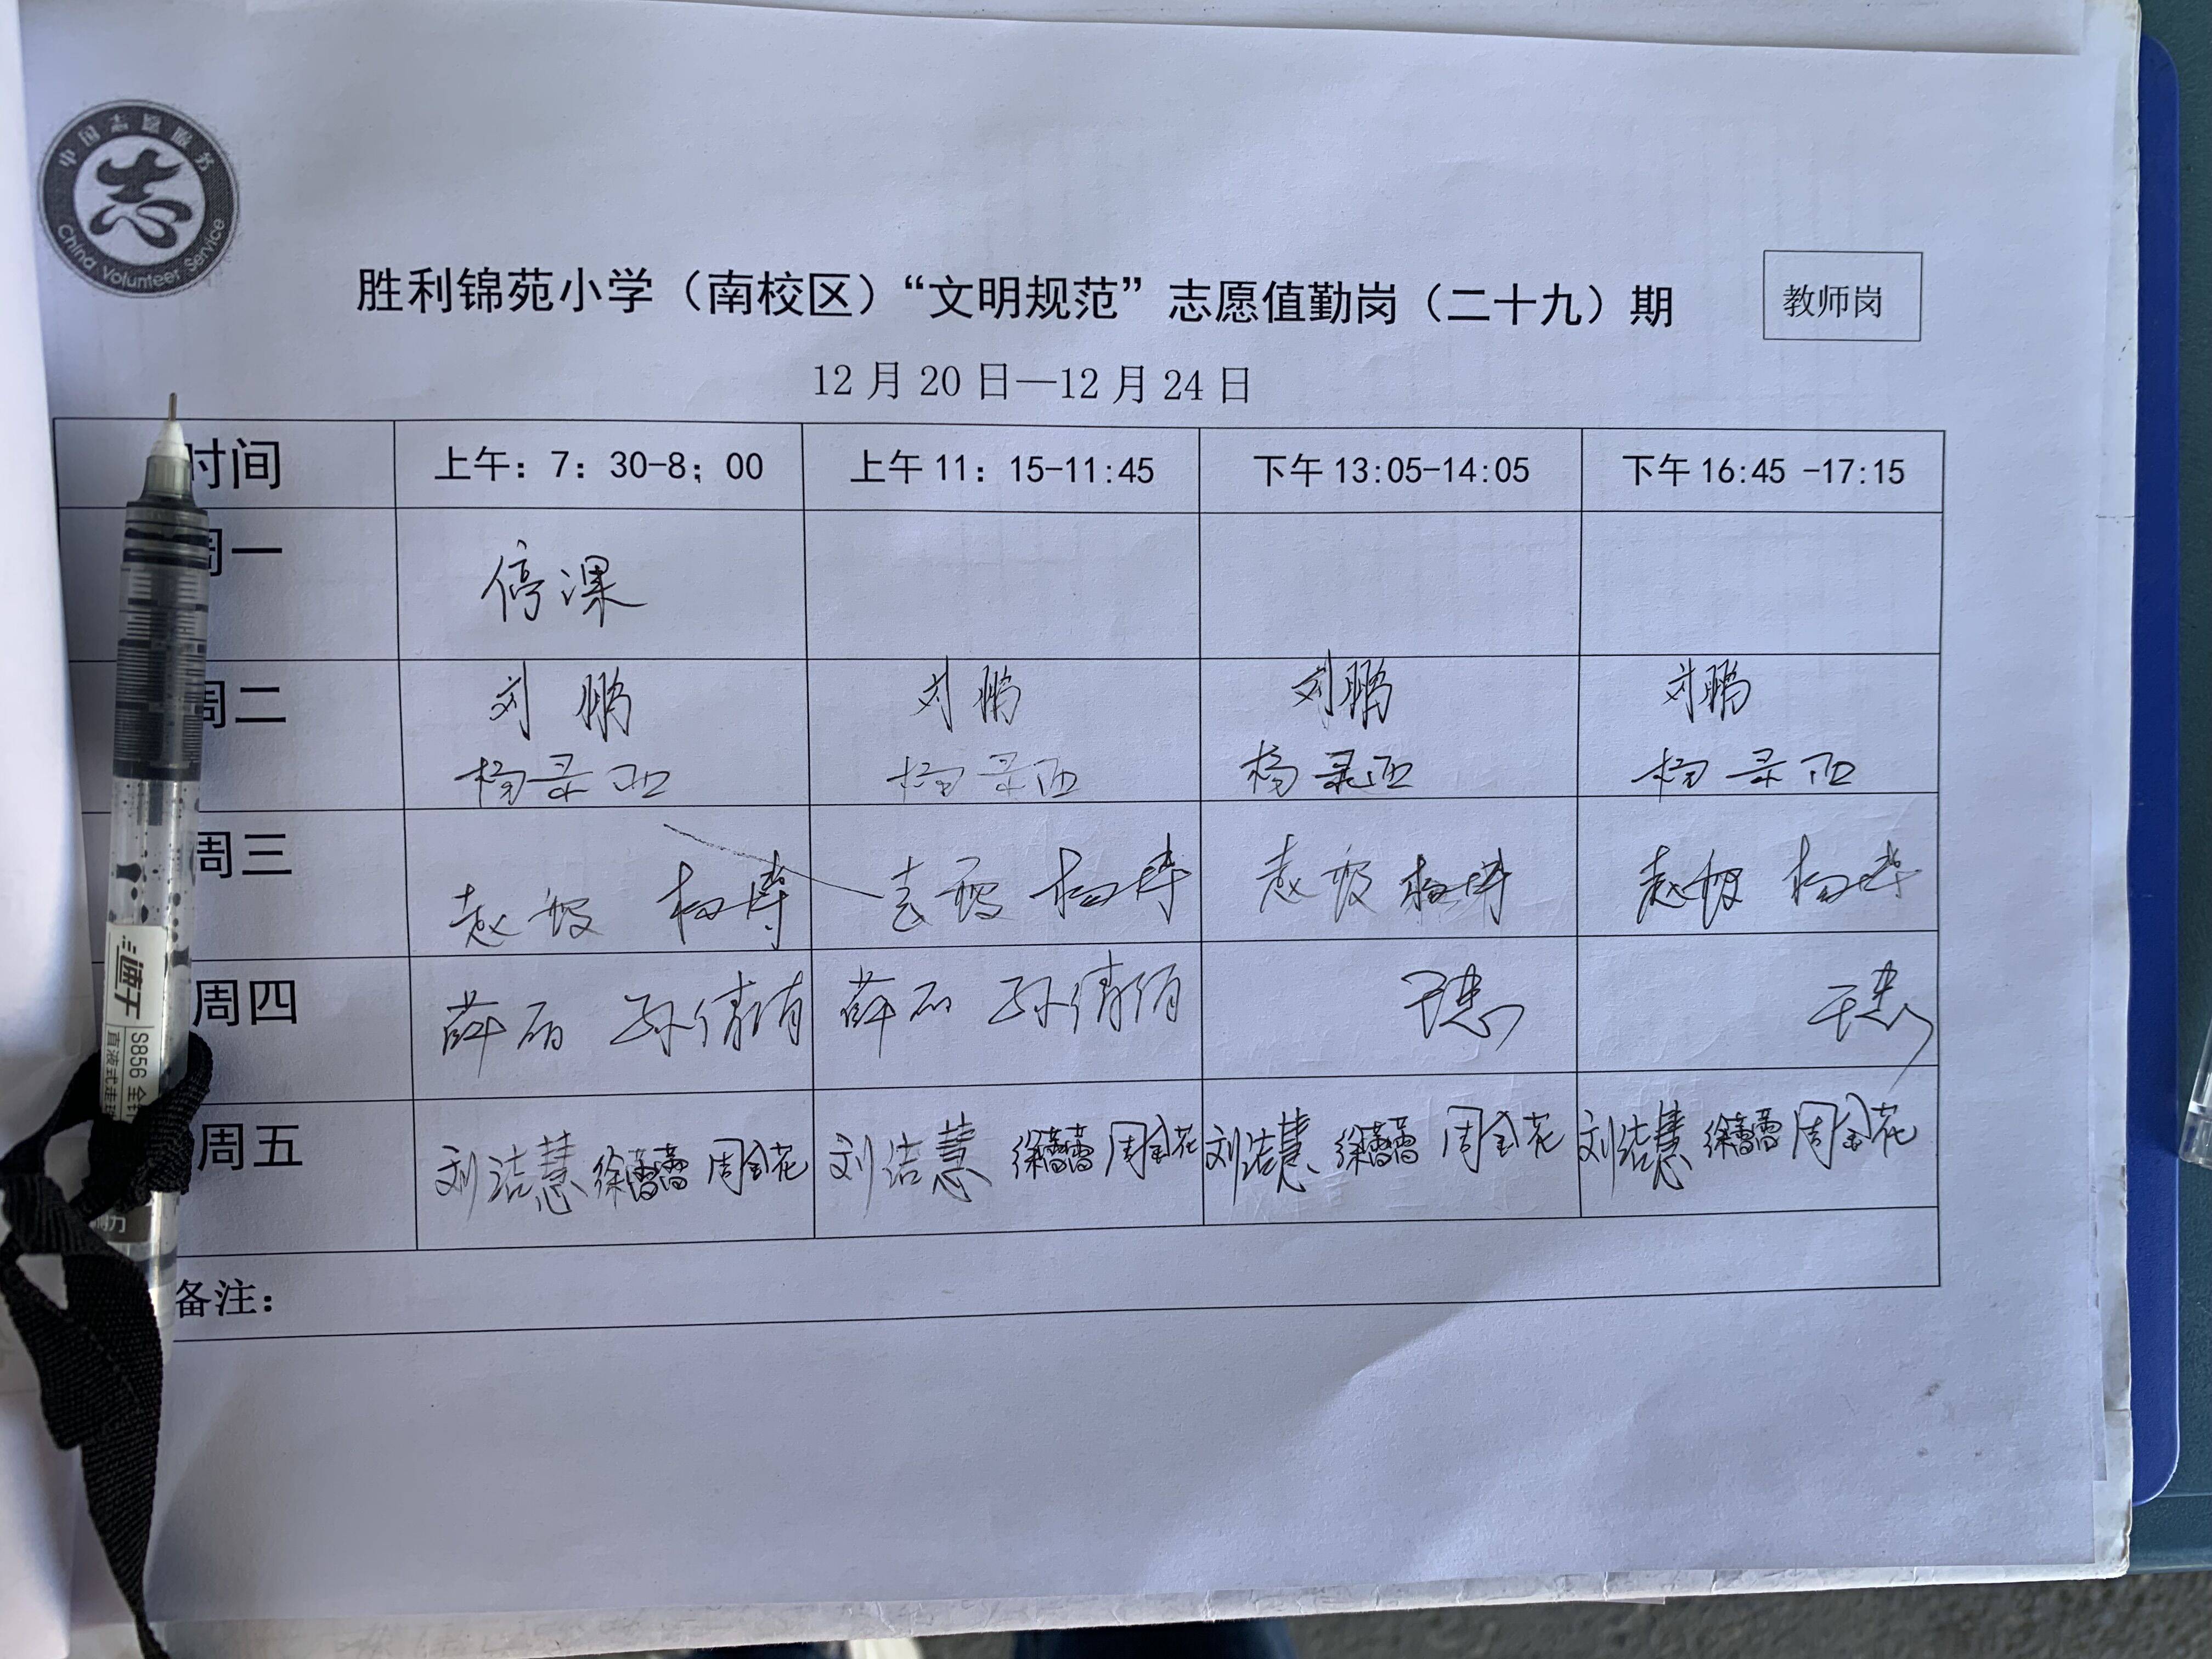 中国志愿服务
志
China Volunteer Service
胜利锦苑小学（南校区）“文明规范”志愿值勤岗（二十九）期
教师岗
12月20日—12月24日
时间 上午：7：30-8；00 上午11：15-11:45 下午13:05-14:05 下午16:45 -17:15
周一 停课
周二 刘鹏 刘鹏 刘鹏 刘鹏
杨录西 杨录西 杨录西 杨录西
周三 赵 赵 赵
周四 薛丽 孙倩倩 薛丽 孙倩倩
周五 刘洁慧 徐蕾蕾 周金花 刘洁慧 徐蕾蕾 周金花 刘洁慧 徐蕾蕾 周金花 刘洁慧 徐蕾蕾 周金花
备注：
速干
S856
直液式走珠